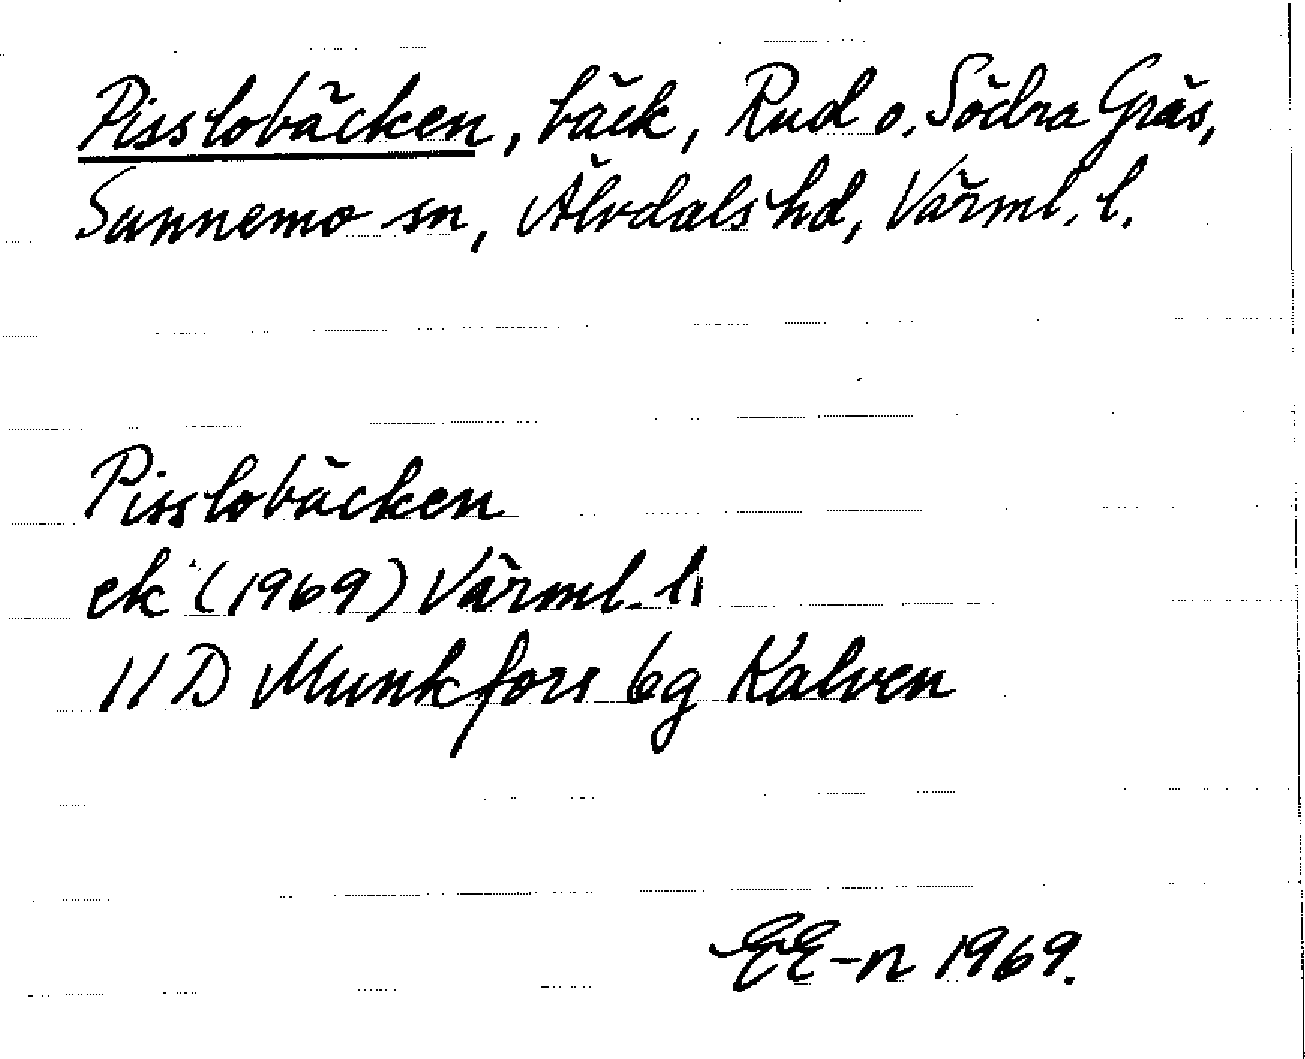 Pisslobäcken, bäck, Rud o. Södra Gräs,
Sunnemo sn, Älvdals hd, Värml. l.
Pisslobäcken
ek (1969) Värml. l.
11 D Munkfors 6g Kalven
EE-n 1969.